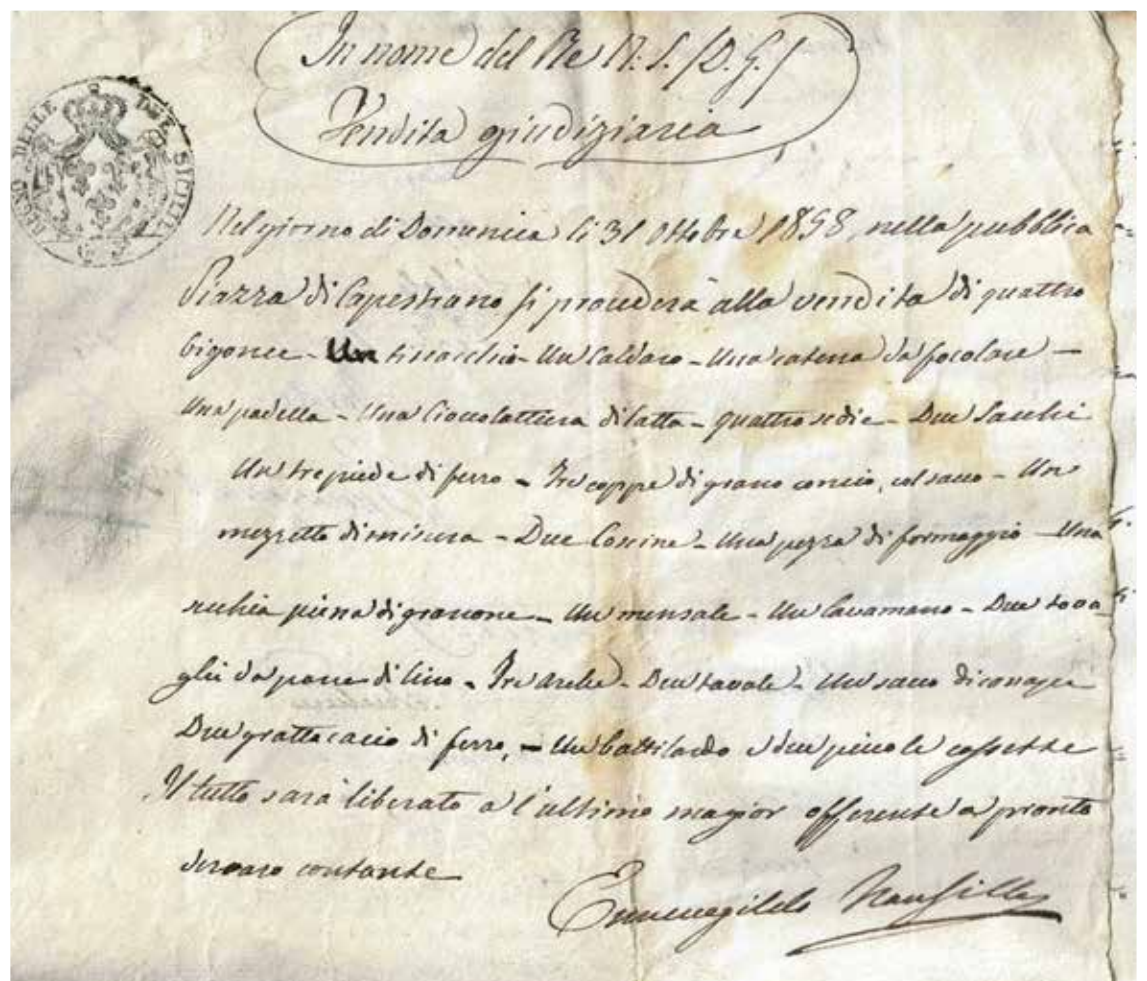 In nome del Re N. S. /D. G./
Vendita giudiziaria
REGNO DELLE DUE SICILIE
Nel giorno di Domenica li 31 Ottobre 1858, nella pubblica
Piazza di Capestrano si procederà alla vendita di quattro
bigonce - Un tinacchio - Un Caldaro - Una catena da focolare -
Una padella - Una Cioccolattiera di latta - quattro sedie - Due Sacchi
Un trepiede di ferro - Tre coppe di grano concio, col sacco - Un
mezzetto di misura - Due Coscine - Una pezza di formaggio - Una
secchia piena di granone - Un mensale - Un Lavamano - Due tova
glie da pane di lino - Tre Arche - Due tavole - Un sacco di
Due grattacacio di ferro, - Un battilardo e due piccole cassette
Il tutto sarà liberato a l'ultimo magior offerente a pronto
denaro contante